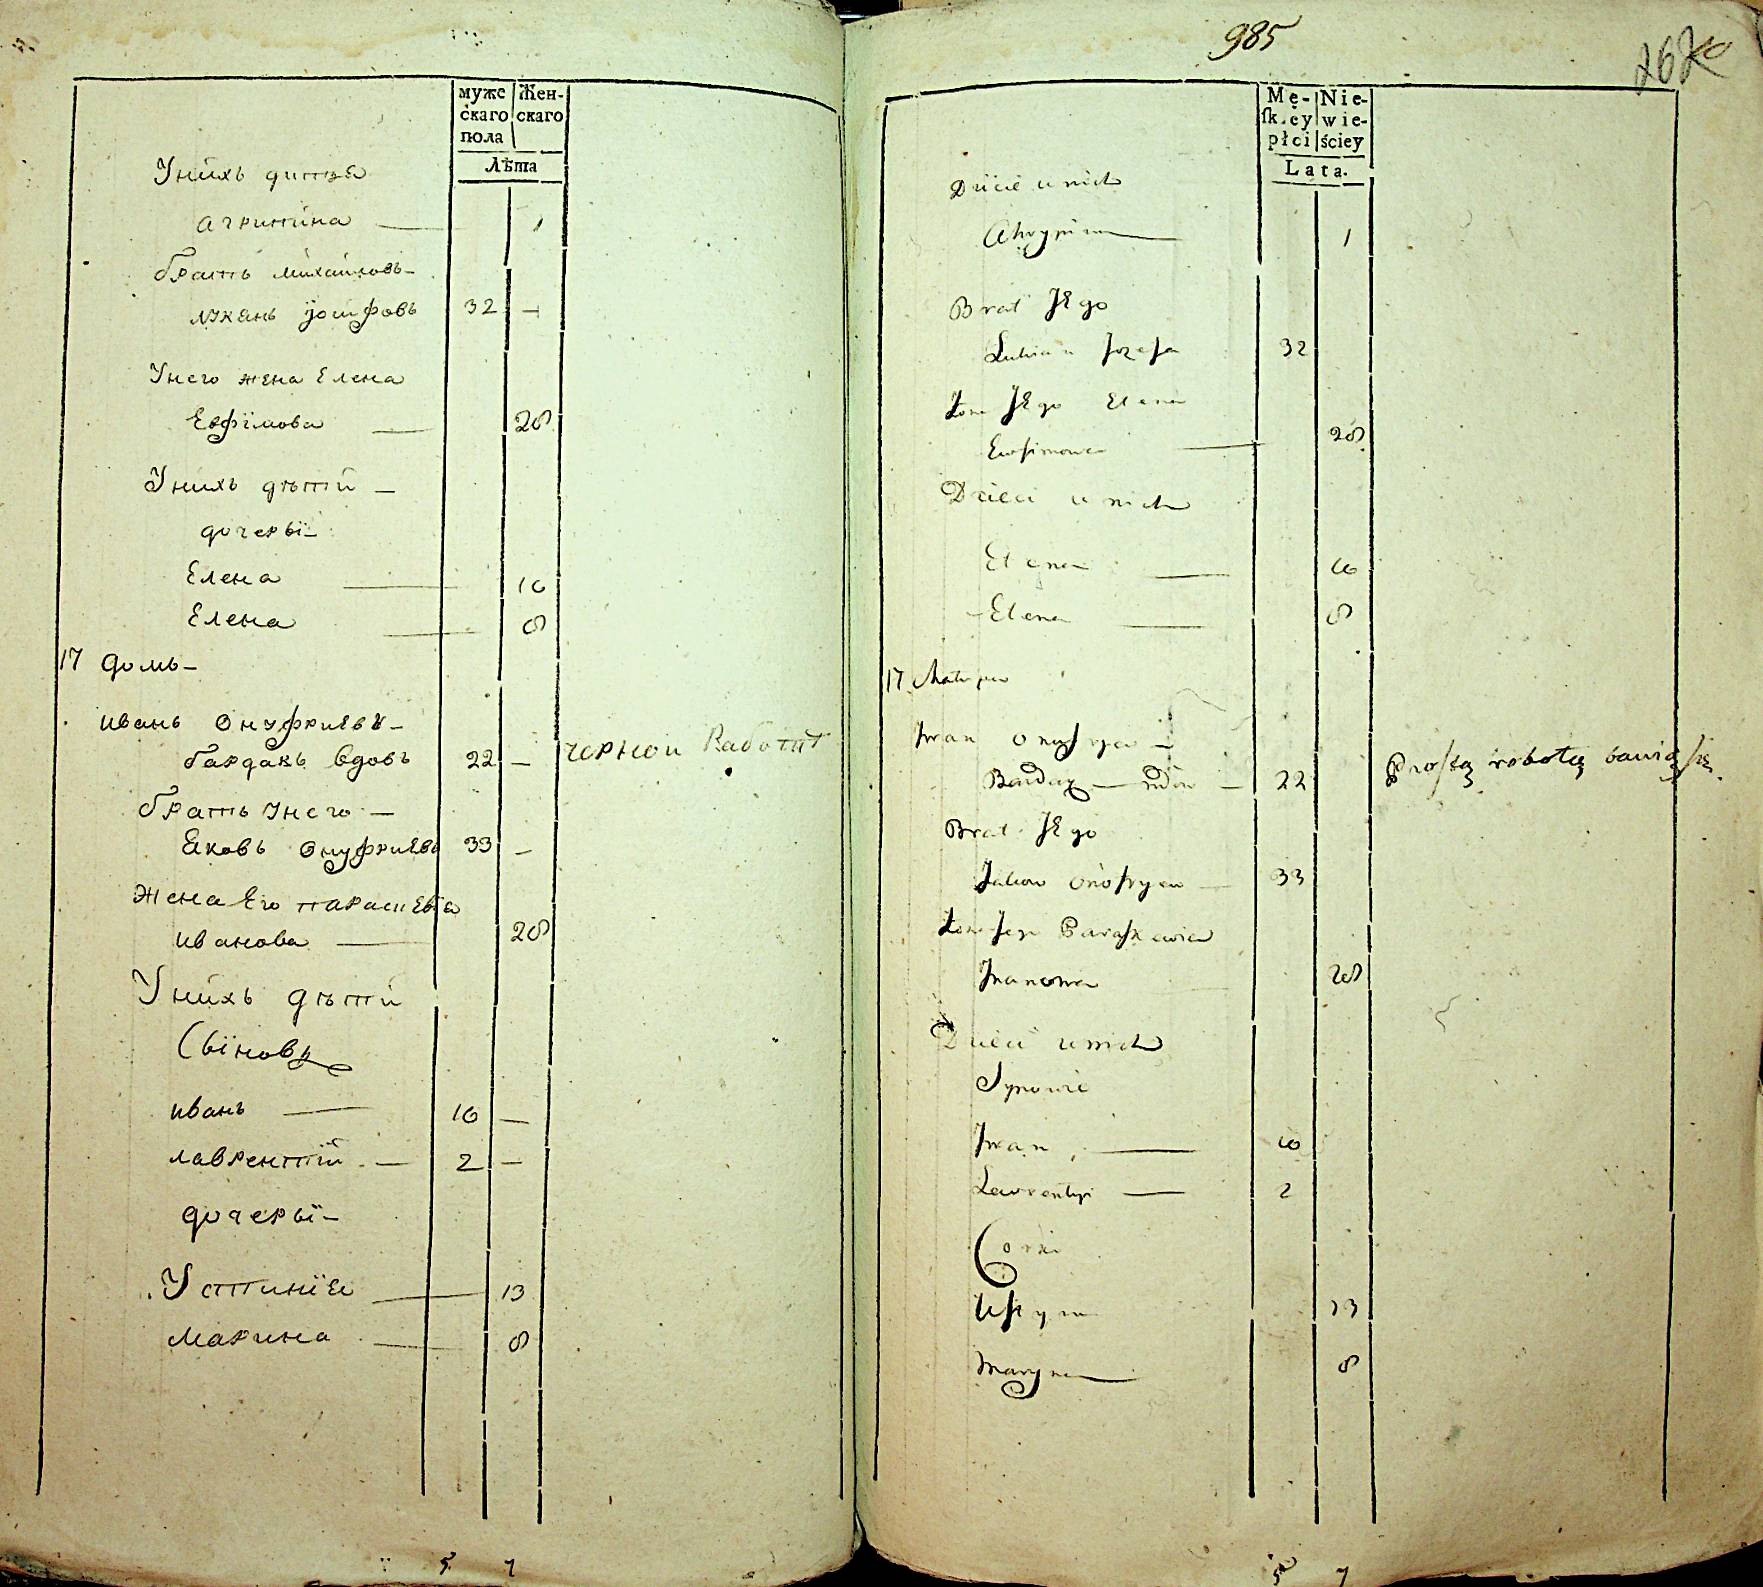 муже
скаго
пола
Жен-
скаго
Лѣта
Унихъ дитя
Агрипина — 1
братъ михайловъ —
лукянъ Іосифовъ 32 —
Унего жена Елена
Евфимова — 28
Унихъ дѣти —
дочеры —
Елена — 10
Елена — 8
17 домъ —
иванъ Онуфриевъ —
бардакъ вдовъ 22 — чорнои Работи
братъ Унего —
Яковъ Онуфриевъ 33 —
жена Его параскевия
иванова — 28
Унихъ дѣти
Сыновя
иванъ — 10 —
лаврентій — 2 —
дочеры —
Устинія — 13
марина — 8
5 7
985
262
Mę-
ſkiey
płci
Nie-
wie-
ściey
Lata.
Dziecie u nich
Ahrypina — 1
Brat JEgo
Lukian Jozefa 32
Żona JEgo Elena
Ewfimowa — 28
Dzieci u nich
Elena — 10
Elena — 8
17
Iwan Onufryew —
Bardak — wdow — 22 Prostą robotą bawią się.
Brat JEgo
Jakow Onofryew — 33
Żona Jego Paraskewia
Iwanowa 28
Dzieci u nich
Synowie
Iwan — 10
Lawrentyi — 2
Corki
13
Maryna — 8
5 7